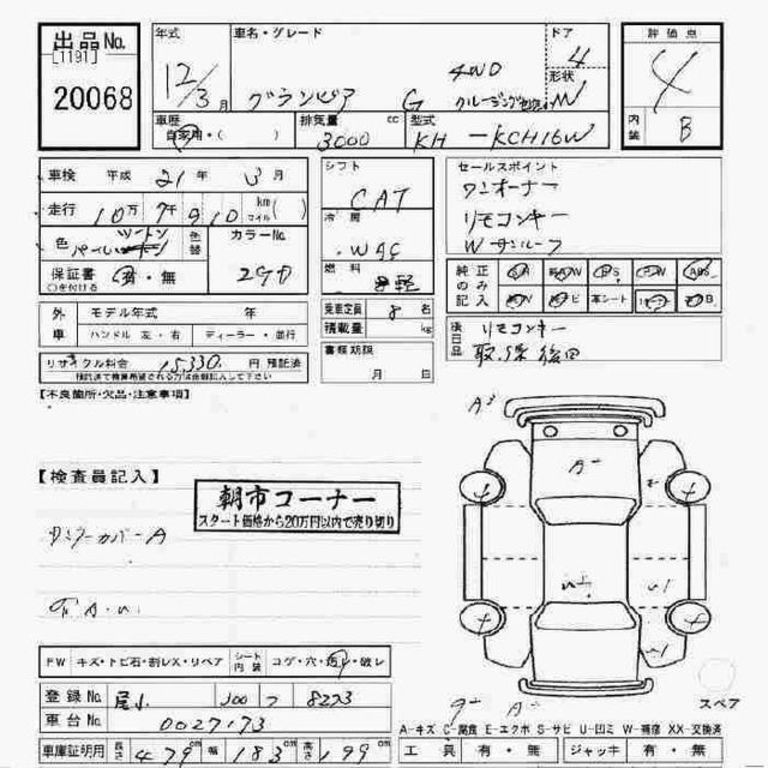 出品 No. 年式 車名・グレード ドア 評価点
[1191]
20068
12/3月 グランビア G 4WD 4
形状 W
4
車歴 排気量 cc 型式
自家用・( ) 3000 KH-KCH16W
内装 B
車検 平成 21 年 3 月
シフト CAT
セールスポイント
ワンオーナー
リモコンキー
Wサンルーフ
走行 10万 7千 9 10 km マイル ( )
冷房 WAC
色 パール ツートン 色替 カラーNo. 290
燃料 軽
純正のみ記入
P.S P.W ABS
革シート
保証書 有・無
○を付ける
外車 モデル年式 年
ハンドル 左・右 ディーラー・並行
乗車定員 8 名
積載量 kg
後日品 リモコンキー
取.保後日
リサイクル料金 15,330 円 預託済
預託済で換算希望される方は金額記入して下さい
書類期限
月 日
【不良箇所・欠品・注意事項】
【検査員記入】
朝市コーナー
スタート価格から20万円以内で売り切り
A3
A-
FW キズ・トビ石・割レX・リペア シート内装 コゲ・穴・汚レ・破レ
登録No. 尾小 300 フ 8273
車台No. 0027173
車庫証明用 長さ 479 cm 幅 183 cm 高さ 199 cm
スペア
A-キズ C-腐食 E-エクボ S-サビ U-凹ミ W-補修 XX-交換済
工具 有・無 ジャッキ 有・無